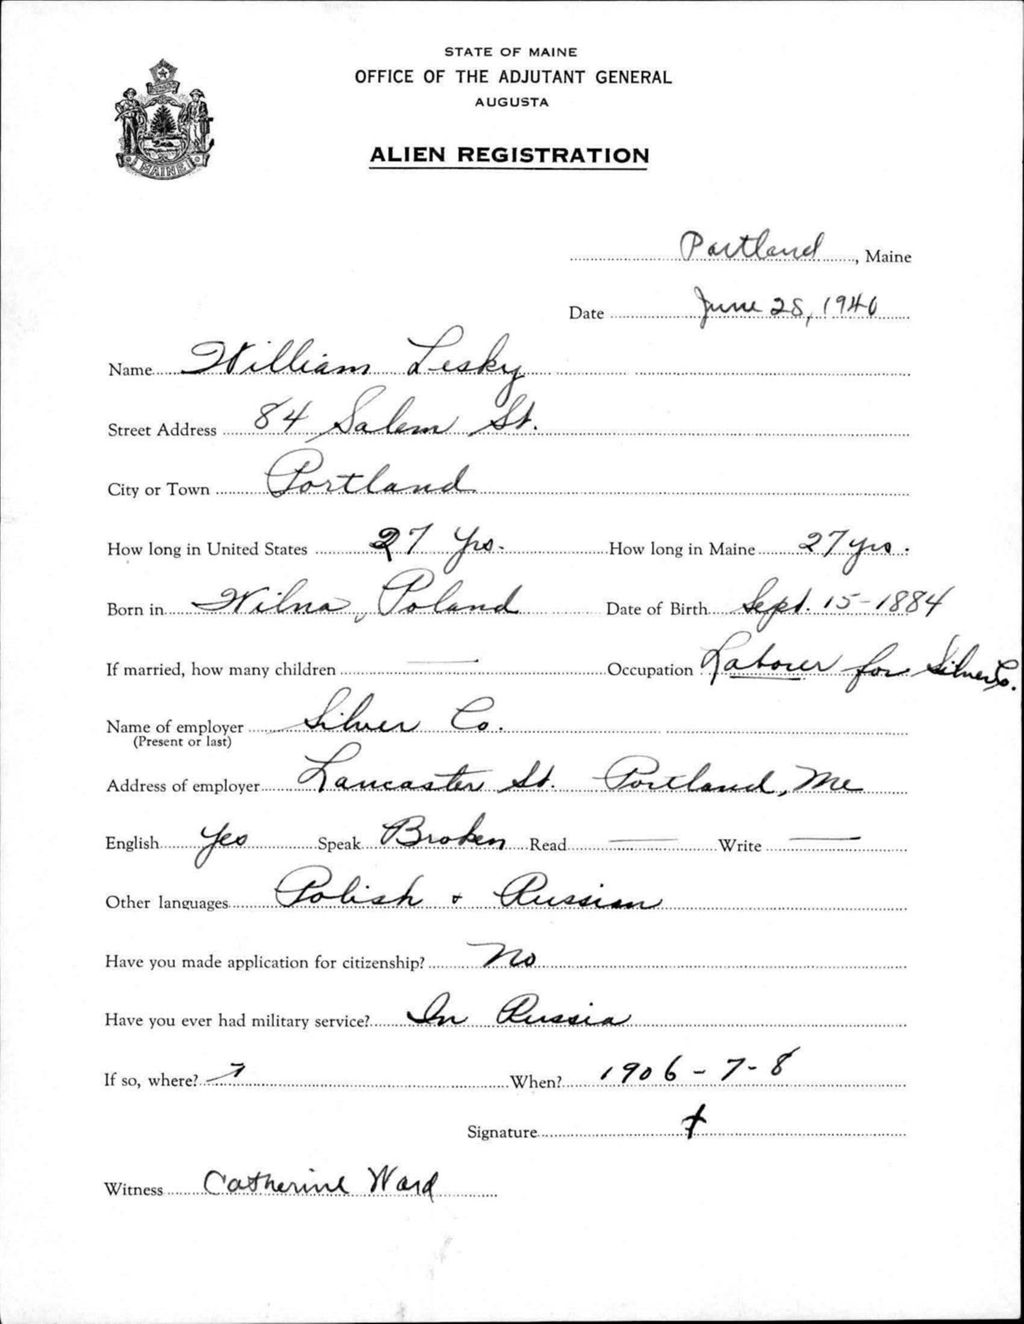 STATE OF MAINE
OFFICE OF THE ADJUTANT GENERAL
AUGUSTA
ALIEN REGISTRATION
MAINE
Portland, Maine
Date June 28, 1940
Name William Lesky
Street Address 84 Salem St.
City or Town Portland
How long in United States 27 Yrs. How long in Maine 27 yrs.
Born in Wilna, Poland Date of Birth Sept. 15-1884
If married, how many children — Occupation Labourer for Silver Co.
Name of employer Silver Co.
(Present or last)
Address of employer Lancaster St. Portland, Me
English Yes Speak Broken Read — Write —
Other languages Polish + Russian
Have you made application for citizenship? No
Have you ever had military service? In Russia
If so, where? When? 1906-7-8
Signature +
Witness Catherine Ward